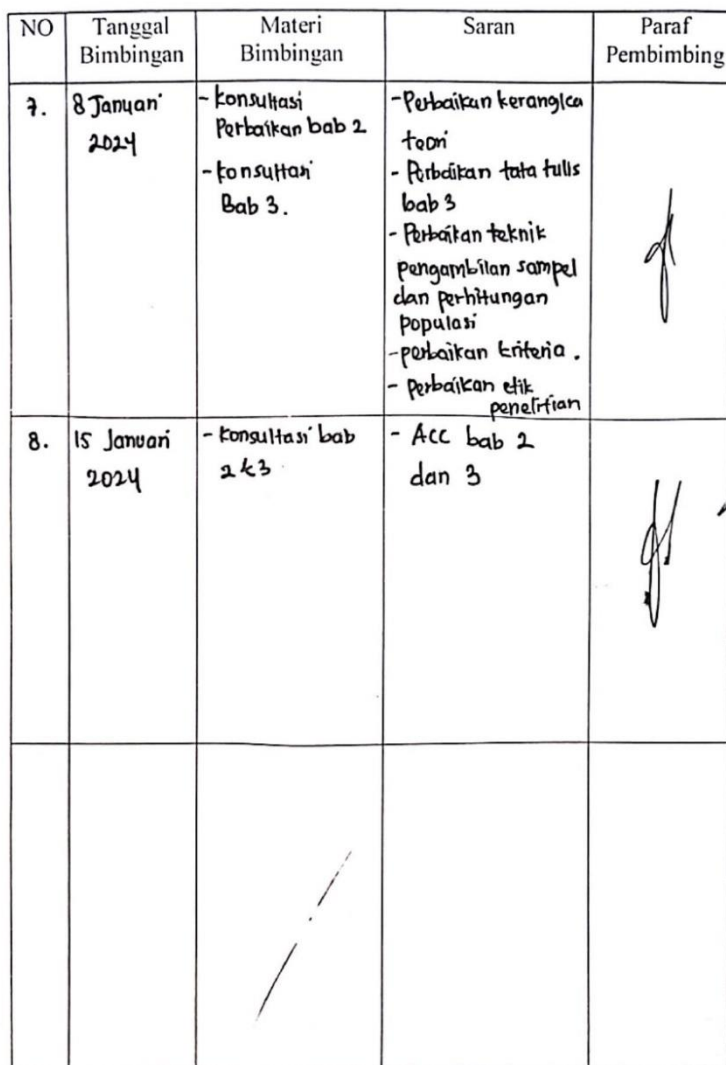 NO
Tanggal
Bimbingan
Materi
Bimbingan
Saran
Paraf
Pembimbing
7.
8 Januari
2024
- konsultasi
Perbaikan bab 2
- konsultasi
Bab 3.
- Perbaikan kerangka
teori
- Perbaikan tata tulis
bab 3
- Perbaikan teknik
pengambilan sampel
dan perhitungan
populasi
- perbaikan kriteria.
- perbaikan etik
penelitian
8.
15 Januari
2024
- konsultasi bab
2 & 3
- ACC bab 2
dan 3